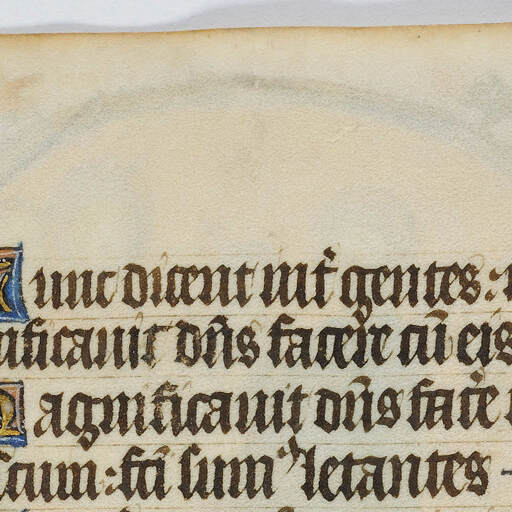 Tunc dicent int̄ gentes : m
nificavit dn̄s facere cū eis
Magnificavit dn̄s facē
scum : fc̄i sumꝰ letantes